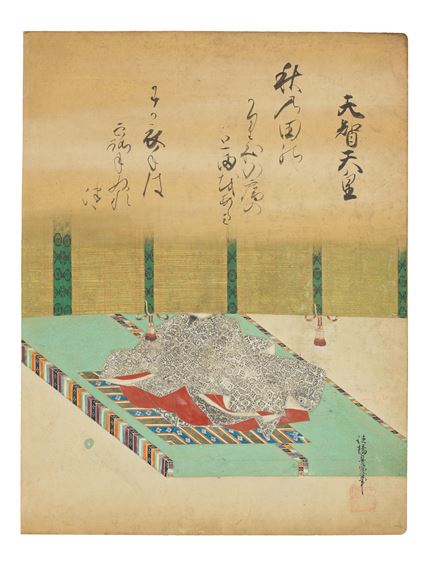 天智天皇
秋乃田の
かりほの庵の
とまをあらみ
わか衣手は
つゆにぬれ
つゝ
法橋
筆